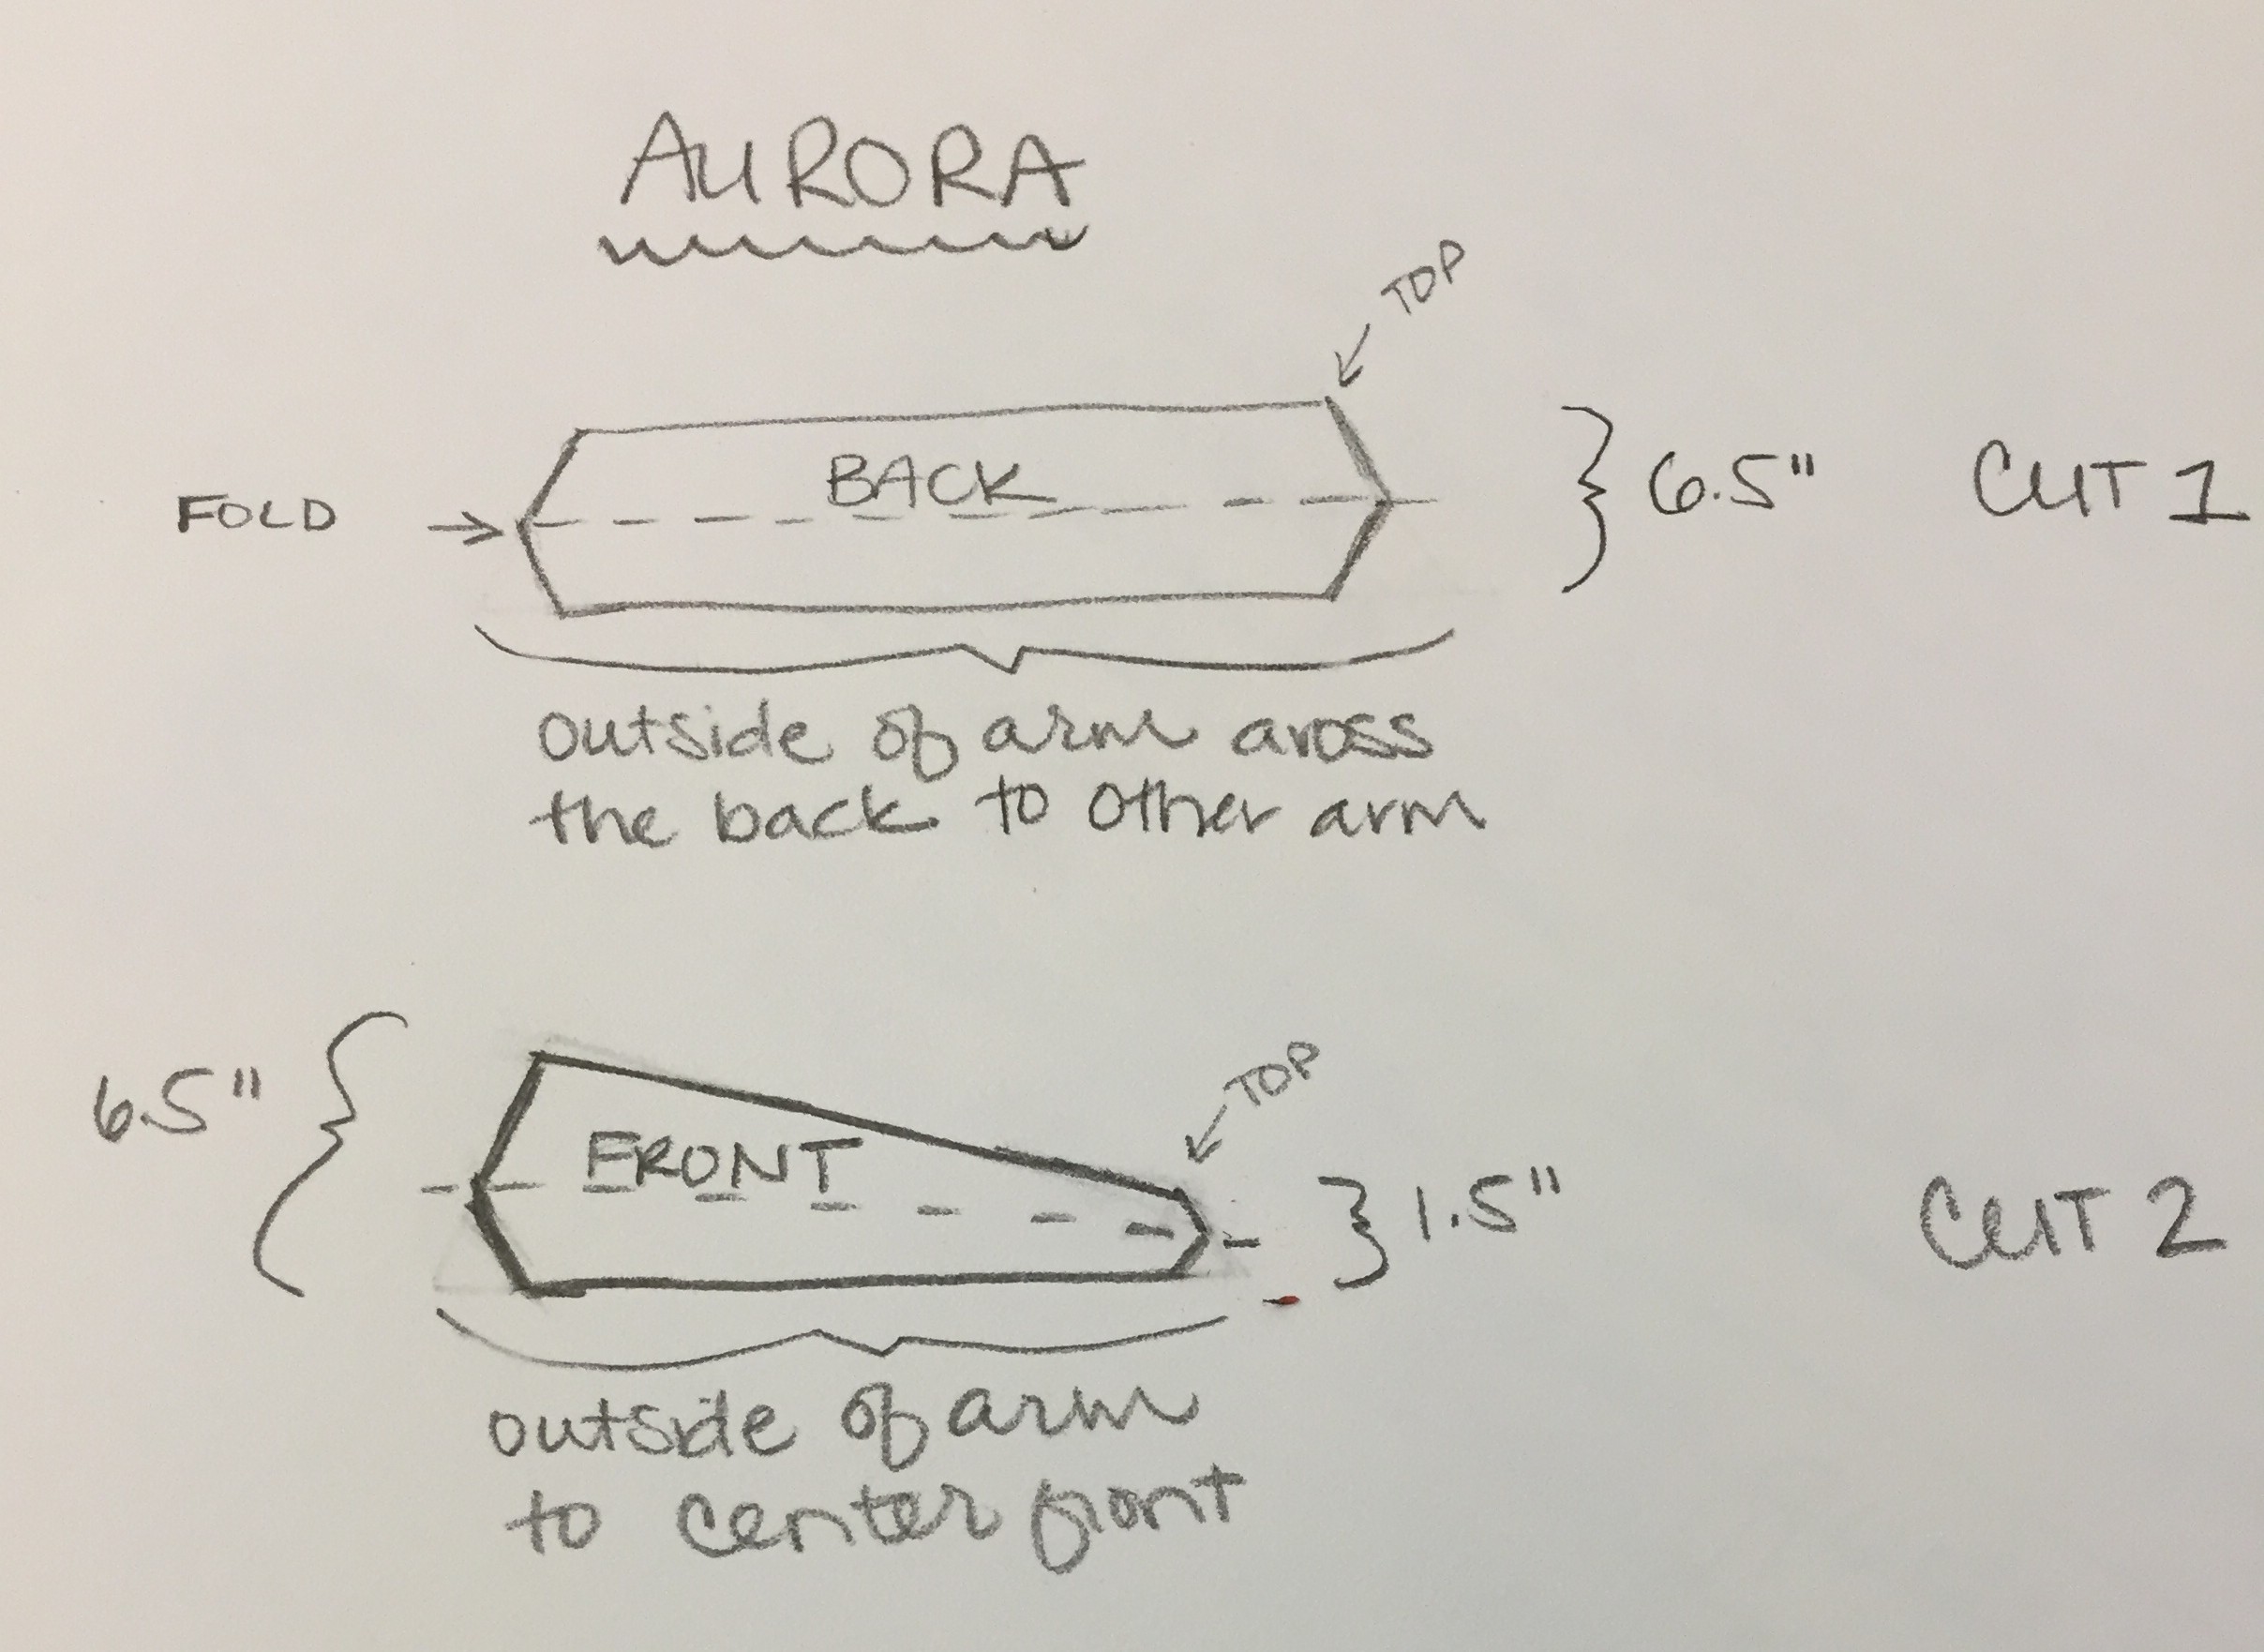 AURORA
TOP
BACK
FOLD
6.5" CUT 1
outside of arm aross
the back to other arm
TOP
6.5"
FRONT
1.5" CUT 2
outside of arm
to center front